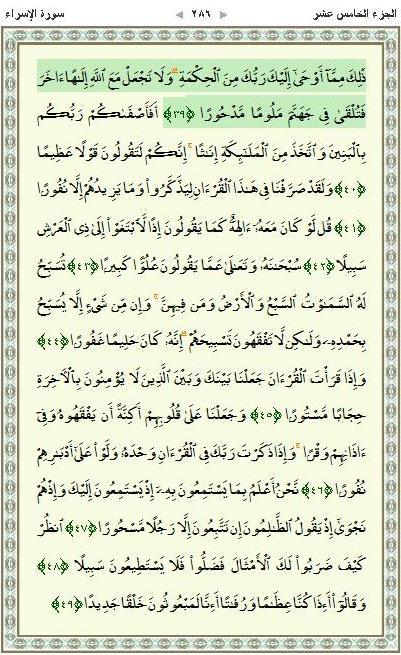 الجزء الخامس عشر ٢٨٦ سورة الإسراء
ذَٰلِكَ مِمَّآ أَوْحَىٰٓ إِلَيْكَ رَبُّكَ مِنَ ٱلْحِكْمَةِ ۗ وَلَا تَجْعَلْ مَعَ ٱللَّهِ إِلَٰهًا ءَاخَرَ
فَتُلْقَىٰ فِى جَهَنَّمَ مَلُومًا مَّدْحُورًا ﴿٣٩﴾ أَفَأَصْفَىٰكُمْ رَبُّكُم
بِٱلْبَنِينَ وَٱتَّخَذَ مِنَ ٱلْمَلَٰٓئِكَةِ إِنَٰثًا ۚ إِنَّكُمْ لَتَقُولُونَ قَوْلًا عَظِيمًا
﴿٤٠﴾ وَلَقَدْ صَرَّفْنَا فِى هَٰذَا ٱلْقُرْءَانِ لِيَذَّكَّرُوا۟ وَمَا يَزِيدُهُمْ إِلَّا نُفُورًا
﴿٤١﴾ قُل لَّوْ كَانَ مَعَهُۥٓ ءَالِهَةٌ كَمَا يَقُولُونَ إِذًا لَّٱبْتَغَوْا۟ إِلَىٰ ذِى ٱلْعَرْشِ
سَبِيلًا ﴿٤٢﴾ سُبْحَٰنَهُۥ وَتَعَٰلَىٰ عَمَّا يَقُولُونَ عُلُوًّا كَبِيرًا ﴿٤٣﴾ تُسَبِّحُ
لَهُ ٱلسَّمَٰوَٰتُ ٱلسَّبْعُ وَٱلْأَرْضُ وَمَن فِيهِنَّ ۚ وَإِن مِّن شَىْءٍ إِلَّا يُسَبِّحُ
بِحَمْدِهِۦ وَلَٰكِن لَّا تَفْقَهُونَ تَسْبِيحَهُمْ ۗ إِنَّهُۥ كَانَ حَلِيمًا غَفُورًا ﴿٤٤﴾
وَإِذَا قَرَأْتَ ٱلْقُرْءَانَ جَعَلْنَا بَيْنَكَ وَبَيْنَ ٱلَّذِينَ لَا يُؤْمِنُونَ بِٱلْءَاخِرَةِ
حِجَابًا مَّسْتُورًا ﴿٤٥﴾ وَجَعَلْنَا عَلَىٰ قُلُوبِهِمْ أَكِنَّةً أَن يَفْقَهُوهُ وَفِىٓ
ءَاذَانِهِمْ وَقْرًا ۚ وَإِذَا ذَكَرْتَ رَبَّكَ فِى ٱلْقُرْءَانِ وَحْدَهُۥ وَلَّوْا۟ عَلَىٰٓ أَدْبَٰرِهِمْ
نُفُورًا ﴿٤٦﴾ نَّحْنُ أَعْلَمُ بِمَا يَسْتَمِعُونَ بِهِۦٓ إِذْ يَسْتَمِعُونَ إِلَيْكَ وَإِذْ هُمْ
نَجْوَىٰٓ إِذْ يَقُولُ ٱلظَّٰلِمُونَ إِن تَتَّبِعُونَ إِلَّا رَجُلًا مَّسْحُورًا ﴿٤٧﴾ ٱنظُرْ
كَيْفَ ضَرَبُوا۟ لَكَ ٱلْأَمْثَالَ فَضَلُّوا۟ فَلَا يَسْتَطِيعُونَ سَبِيلًا ﴿٤٨﴾
وَقَالُوٓا۟ أَءِذَا كُنَّا عِظَٰمًا وَرُفَٰتًا أَءِنَّا لَمَبْعُوثُونَ خَلْقًا جَدِيدًا ﴿٤٩﴾